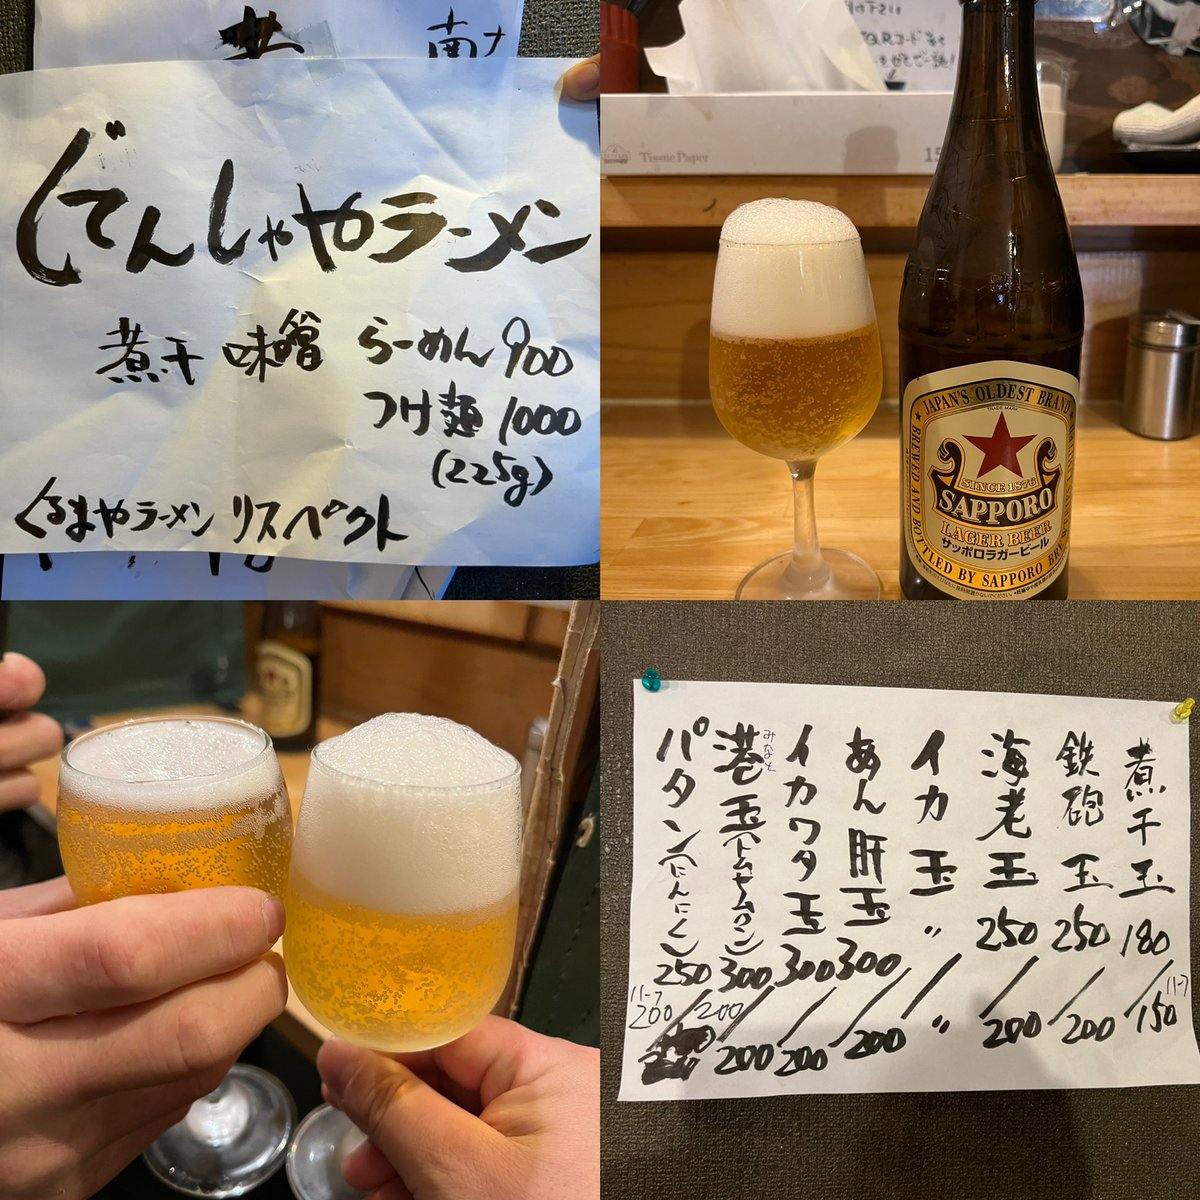 南ナ
ぐでんしゃやラーメン
煮干 味噌 らーめん 900
つけ麺 1000
(225g)
くるまやラーメン リスペクト
QRコード
Tissue Paper
15
JAPAN'S OLDEST BRAND
TRADE MARK
SINCE 1876
SAPPORO
LAGER BEER
サッポロラガービール
BREWED AND BOTTLED BY SAPPORO BREW
煮干玉 180/150
鉄砲玉 250/200
海老玉 250/200
イカ玉 〃/〃
あん肝玉 300/200
イカワタ玉 300/200
港玉(トムヤムクン) 300/200
みなと
パタン(にんにく) 250/200
ハーフ
200
ハーフ